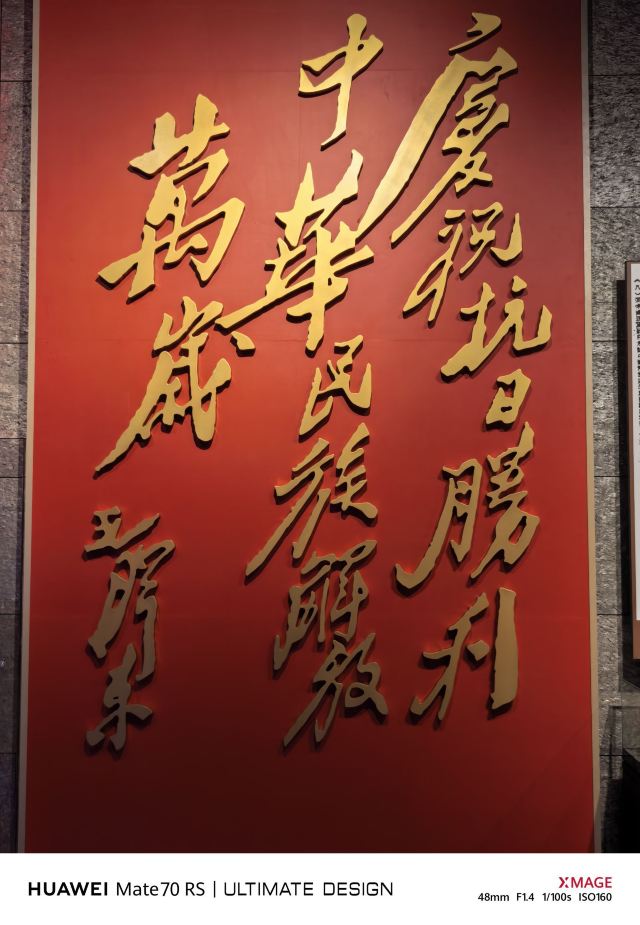 慶祝抗日勝利
中華民族解放
萬歲
毛澤東
HUAWEI Mate70 RS | ULTIMATE DESIGN
XMAGE
48mm F1.4 1/100s ISO160